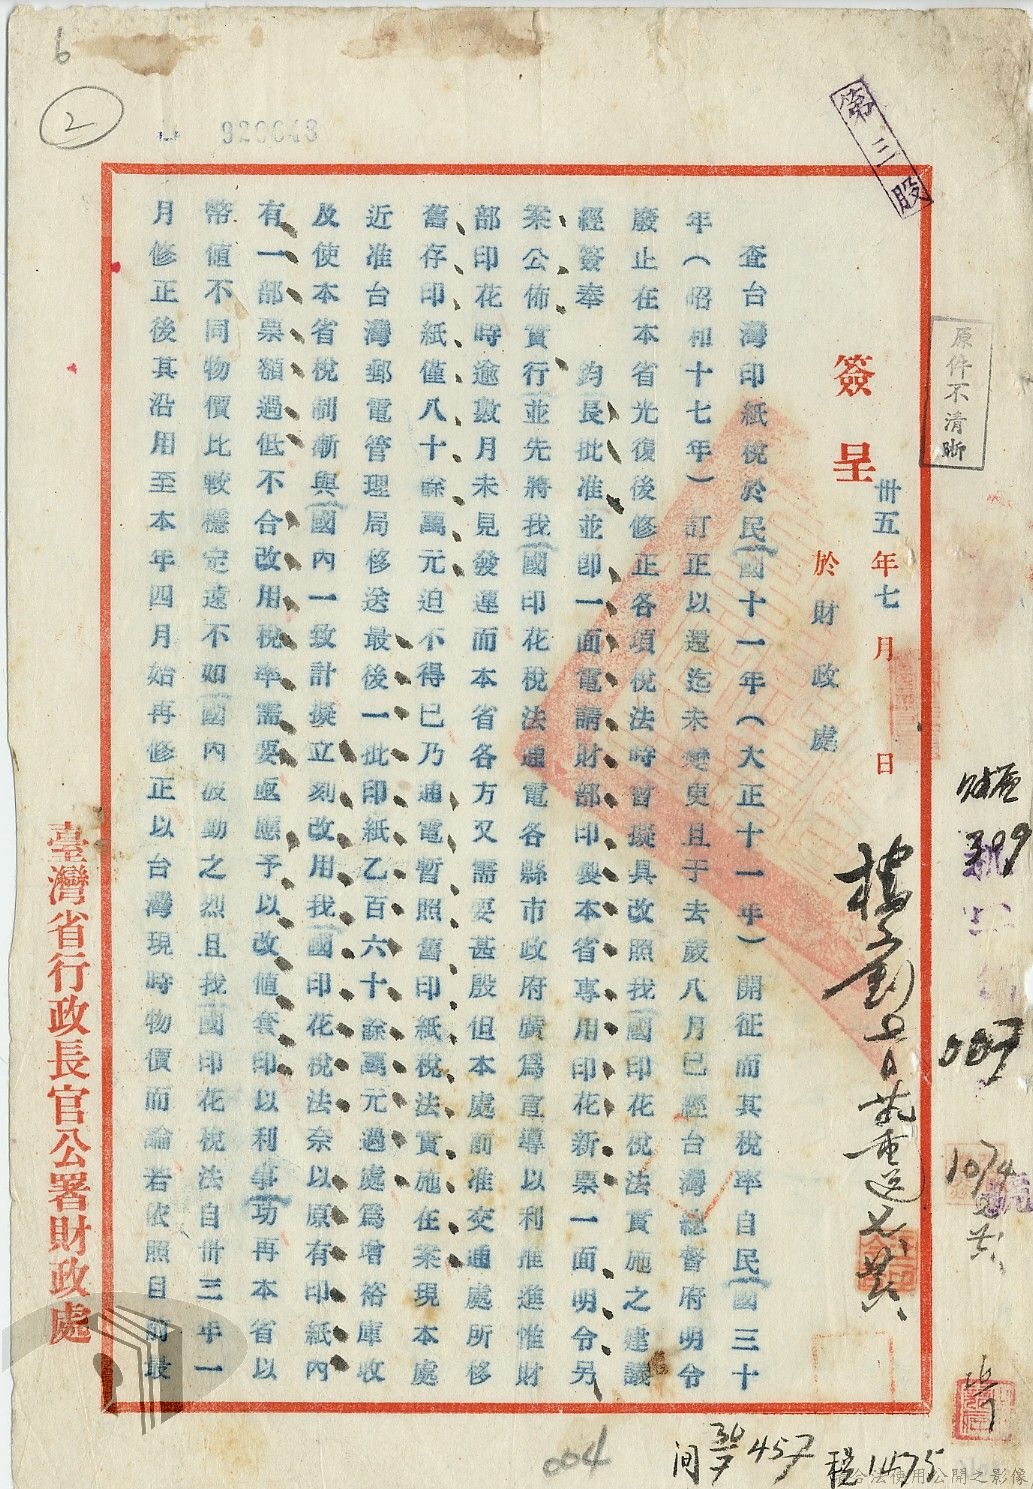 6
2
920048
第三股
原件不清晰
簽呈
卅五年七月 日
於財政處
查台灣印紙稅於民國十一年(大正十一年)開征而其稅率自民國三十
年(昭和十七年)訂正以還迄未變更且于去歲八月已經台灣總督府明令
廢止在本省光復後修正各項稅法時曾擬具改照我國印花稅法實施之建議
經簽奉 鈞長批准並卽一面電請財部印製本省專用印花新票一面明令另
案公佈實行並先將我國印花稅法通電各縣市政府廣為宣導以利推進惟財
部印花時逾數月未見發運而本省各方又需要甚殷但本處前准交通處所移
舊存印紙僅八十餘萬元迫不得已乃通電暫照舊印紙稅法實施在案現本處
近准台灣郵電管理局移送最後一批印紙乙百六十餘萬元過處為增裕庫收
及使本省稅制漸與國內一致計擬立刻改用我國印花稅法奈以原有印紙內
有一部票額過低不合改用稅率需要亟應予以改值套印以利事功再本省以
幣值不同物價比較穩定遠不如國內波動之烈且我國印花稅法自卅三年一
月修正後其沿用至本年四月始再修正以台灣現時物價而論若依照目前最
臺灣省行政長官公署財政處
309
007
10/4
004
457
1475
合法使用公開之影像